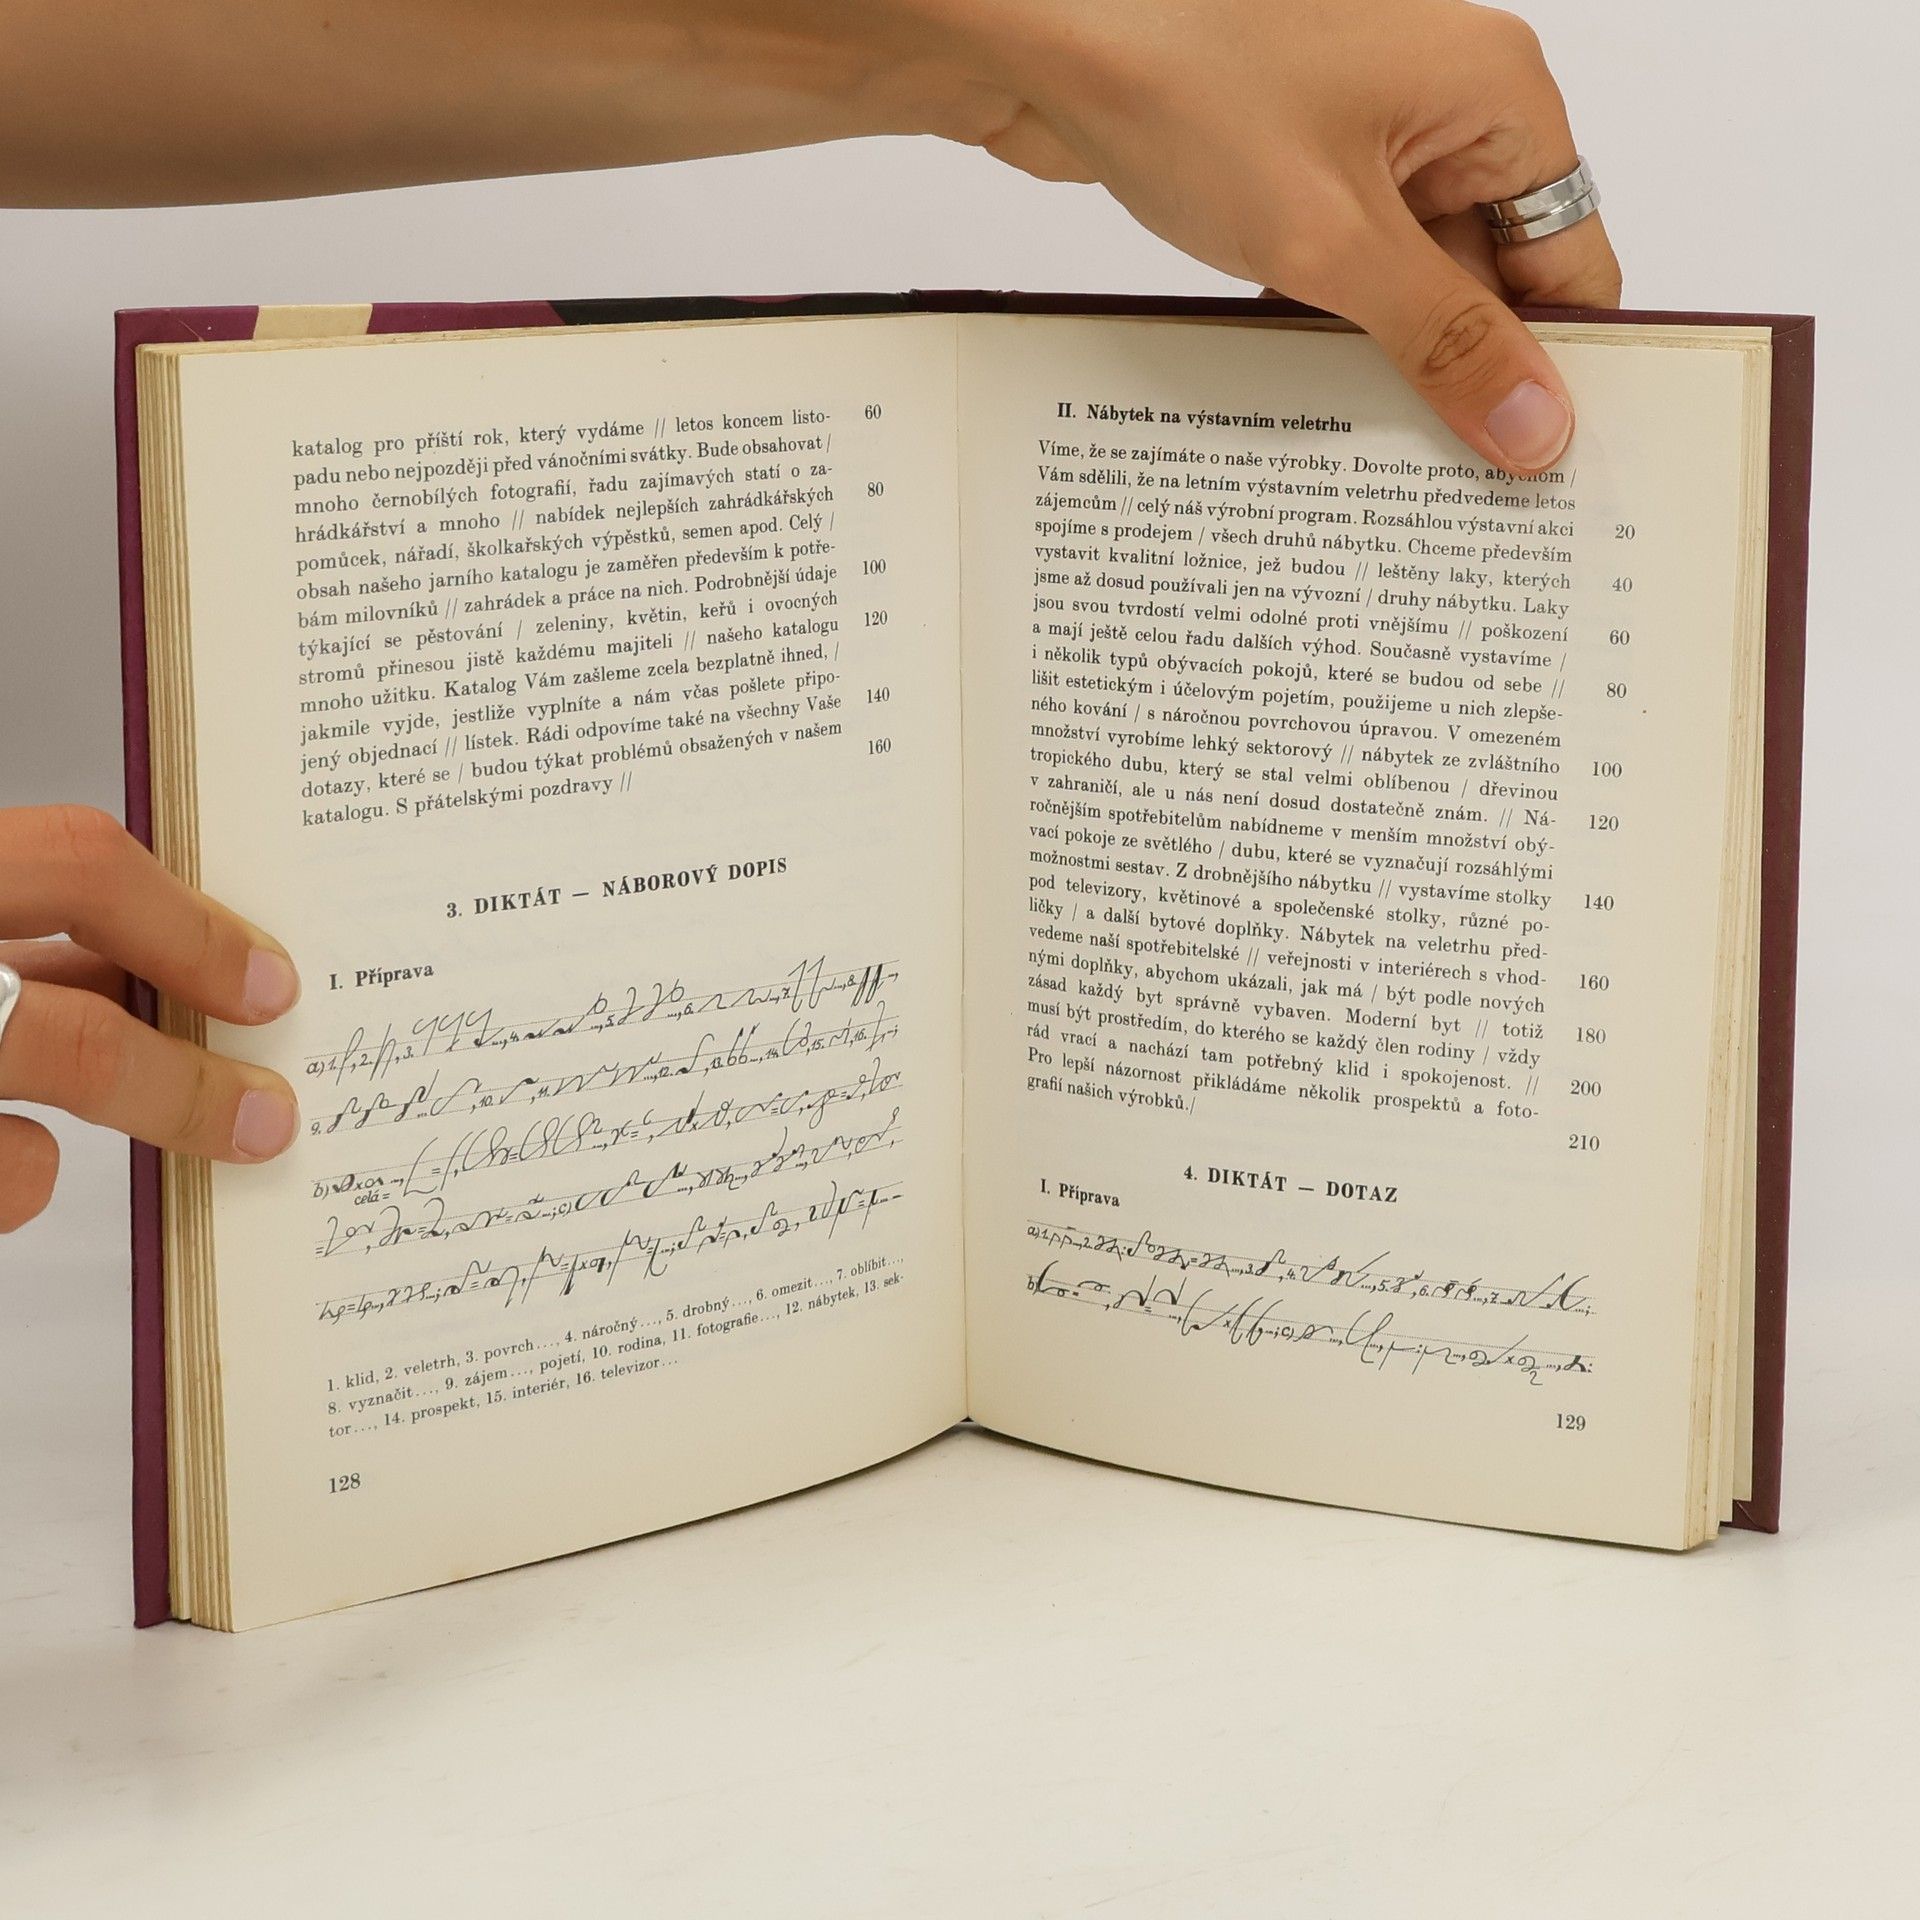 katalog pro příští rok, který vydáme // letos koncem listo- 60
padu nebo nejpozději před vánočními svátky. Bude obsahovat /
mnoho černobílých fotografií, řadu zajímavých statí o za-
hrádkářství a mnoho // nabídek nejlepších zahrádkářských 80
pomůcek, nářadí, školkařských výpěstků, semen apod. Celý /
obsah našeho jarního katalogu je zaměřen především k potře-
bám milovníků // zahrádek a práce na nich. Podrobnější údaje 100
týkající se pěstování / zeleniny, květin, keřů i ovocných
stromů přinesou jistě každému majiteli // našeho katalogu 120
mnoho užitku. Katalog Vám zašleme zcela bezplatně ihned, /
jakmile vyjde, jestliže vyplníte a nám včas pošlete připo-
jený objednací // lístek. Rádi odpovíme také na všechny Vaše 140
dotazy, které se / budou týkat problémů obsažených v našem
katalogu. S přátelskými pozdravy // 160
3. DIKTÁT — NÁBOROVÝ DOPIS
I. Příprava
a) 1. , 2. , 3. ..., 4. ..., 5. ..., 6. ..., 7. ..., 8.
9. ..., 10. , 11. ..., 12. , 13. ..., 14. , 15. , 16.
b)
celá =
c)
1. klid, 2. veletrh, 3. povrch..., 4. náročný..., 5. drobný..., 6. omezit..., 7. oblíbit...,
8. vyznačit..., 9. zájem..., pojetí, 10. rodina, 11. fotografie..., 12. nábytek, 13. sek-
tor..., 14. prospekt, 15. interiér, 16. televizor...
128
II. Nábytek na výstavním veletrhu
Víme, že se zajímáte o naše výrobky. Dovolte proto, abychom /
Vám sdělili, že na letním výstavním veletrhu předvedeme letos
zájemcům // celý náš výrobní program. Rozsáhlou výstavní akci 20
spojíme s prodejem / všech druhů nábytku. Chceme především
vystavit kvalitní ložnice, jež budou // leštěny laky, kterých 40
jsme až dosud používali jen na vývozní / druhy nábytku. Laky
jsou svou tvrdostí velmi odolné proti vnějšímu // poškození 60
a mají ještě celou řadu dalších výhod. Současně vystavíme /
i několik typů obývacích pokojů, které se budou od sebe // 80
lišit estetickým i účelovým pojetím, použijeme u nich zlepše-
ného kování / s náročnou povrchovou úpravou. V omezeném
množství vyrobíme lehký sektorový // nábytek ze zvláštního 100
tropického dubu, který se stal velmi oblíbenou / dřevinou
v zahraničí, ale u nás není dosud dostatečně znám. // Ná- 120
ročnějším spotřebitelům nabídneme v menším množství obý-
vací pokoje ze světlého / dubu, které se vyznačují rozsáhlými
možnostmi sestav. Z drobnějšího nábytku // vystavíme stolky 140
pod televizory, květinové a společenské stolky, různé po-
ličky / a další bytové doplňky. Nábytek na veletrhu před-
vedeme naší spotřebitelské // veřejnosti v interiérech s vhod- 160
nými doplňky, abychom ukázali, jak má / být podle nových
zásad každý byt správně vybaven. Moderní byt // totiž 180
musí být prostředím, do kterého se každý člen rodiny / vždy
rád vrací a nachází tam potřebný klid i spokojenost. // 200
Pro lepší názornost přikládáme několik prospektů a foto-
grafií našich výrobků./ 210
4. DIKTÁT — DOTAZ
I. Příprava
a) 1. ..., 2. ..., 3. , 4. ..., 5. , 6. ..., 7. ...;
b) c)
129